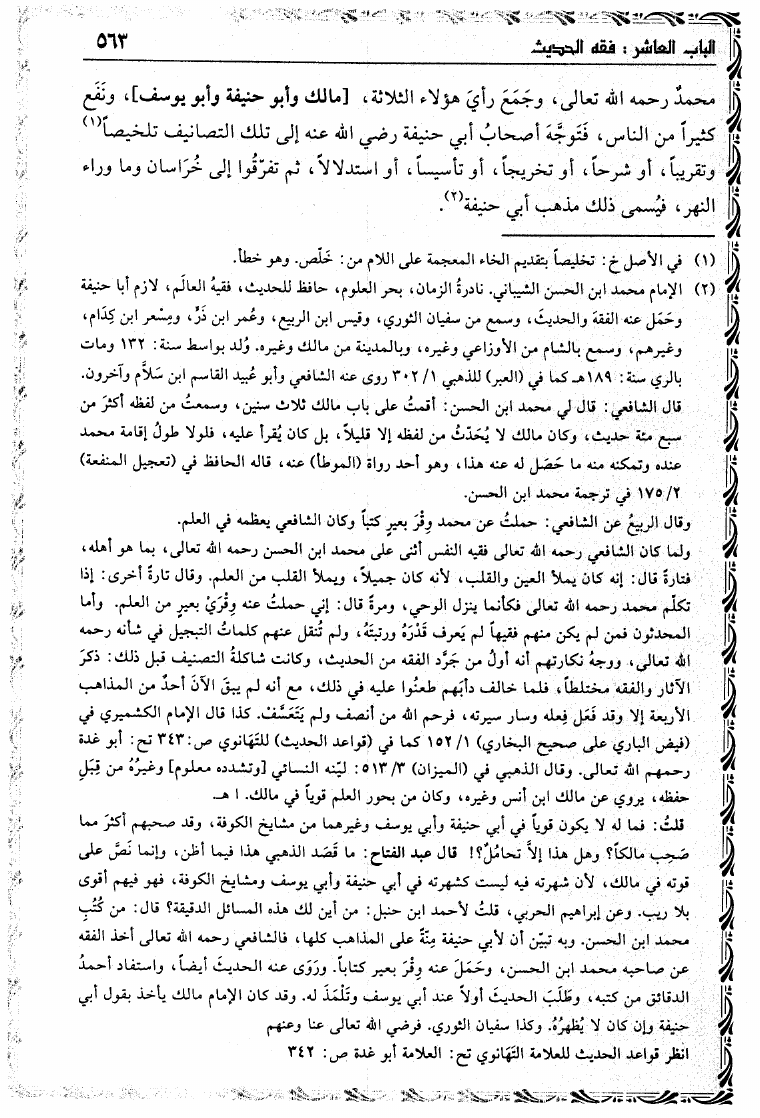 الباب العاشر : فقه الحديث ٥٦٣
محمدٌ رحمه الله تعالى، وجَمَعَ رأيَ هؤلاء الثلاثة، [مالك وأبو حنيفة وأبو يوسف]، ونَفَع
كثيراً من الناس، فَتَوجَّهَ أصحابُ أبي حنيفة رضي الله عنه إلى تلك التصانيف تلخيصاً(١)
وتقريباً، أو شرحاً، أو تخريجاً، أو تأسيساً، أو استدلالاً، ثم تفرَّقُوا إلى خُرَاسان وما وراء
النهر، فيُسمى ذلك مذهب أبي حنيفة(٢).
(١) في الأصل خ: تخليصاً بتقديم الخاء المعجمة على اللام من: خَلَّص. وهو خطأ.
(٢) الإمام محمد ابن الحسن الشيباني. نادرةُ الزمان، بحر العلوم، حافظ للحديث، فقيهُ العالَم، لازم أبا حنيفة
وحَمَل عنه الفقهَ والحديثَ، وسمع من سفيان الثوري، وقيس ابن الربيع، وعُمر ابن ذَرٍّ، ومِسْعر ابن كِدَام،
وغيرهم، وسمع بالشام من الأوزاعي وغيره، وبالمدينة من مالك وغيره. وُلد بواسط سنة: ١٣٢ ومات
بالري سنة: ١٨٩هـ كما في (العبر) للذهبي ١/ ٣٠٢ روى عنه الشافعي وأبو عُبيد القاسم ابن سَلاَّم وآخرون.
قال الشافعي: قال لي محمد ابن الحسن: أقمتُ على باب مالك ثلاث سنين، وسمعتُ من لفظه أكثرَ من
سبع مئة حديث، وكان مالك لا يُحَدّثُ من لفظه إلا قليلاً، بل كان يُقرأ عليه، فلولا طولُ إقامة محمد
عنده وتمكنه منه ما حَصَل له عنه هذا، وهو أحد رواة (الموطأ) عنه، قاله الحافظ في (تعجيل المنفعة)
٢/ ١٧٥ في ترجمة محمد ابن الحسن.
وقال الربيعُ عن الشافعي: حملتُ عن محمد وِقْرَ بعيرٍ كتباً وكان الشافعي يعظمه في العلم.
ولما كان الشافعي رحمه الله تعالى فقيه النفس أثنى على محمد ابن الحسن رحمه الله تعالى، بما هو أهله،
فتارةً قال: إنه كان يملأ العين والقلب، لأنه كان جميلاً، ويملأ القلب من العلم. وقال تارةً أخرى: إذا
تكلّم محمد رحمه الله تعالى فكأنما ينزل الوحي، ومرةً قال: إني حملتُ عنه وِقْرَيْ بعيرٍ من العلم. وأما
المحدثون فمن لم يكن منهم فقيهاً لم يَعرف قَدْرَهُ ورتبتَهُ، ولم تُنقل عنهم كلماتُ التبجيل في شأنه رحمه
الله تعالى، ووجهُ نكارتهم أنه أولُ من جَرَّد الفقه من الحديث، وكانت شاكلةُ التصنيف قبل ذلك: ذكرَ
الآثار والفقه مختلطاً، فلما خالف دأبَهم طعنُوا عليه في ذلك، مع أنه لم يبقَ الآنَ أحدٌ من المذاهب
الأربعة إلا وقد فَعَل فِعله وسار سيرته، فرحم الله من أنصف ولم يَتَعَسَّفْ. كذا قال الإمام الكشميري في
(فيض الباري على صحيح البخاري) ١/ ١٥٢ كما في (قواعد الحديث) للتَهَانوي ص: ٣٤٣ تح: أبو غدة
رحمهم الله تعالى. وقال الذهبي في (الميزان) ٣/ ٥١٣: ليّنه النسائي [وتشدده معلوم] وغيرُهُ من قِبَلِ
حفظه، يروي عن مالك ابن أنس وغيره، وكان من بحور العلم قوياً في مالك. ا هـ
قلتُ: فما له لا يكون قوياً في أبي حنيفة وأبي يوسف وغيرهما من مشايخ الكوفة، وقد صحبهم أكثرَ مما
صَحِب مالكاً؟ وهل هذا إلاَّ تحامُلٌ؟! قال عبد الفتاح: ما قَصَد الذهبي هذا فيما أظن، وإنما نَصَّ على
قوته في مالك، لأن شهرته فيه ليست كشهرته في أبي حنيفة وأبي يوسف ومشايخ الكوفة، فهو فيهم أقوى
بلا ريب. وعن إبراهيم الحربي، قلتُ لأحمد ابن حنبل: من أين لك هذه المسائل الدقيقة؟ قال: من كُتُبِ
محمد ابن الحسن. وبه تبيّن أن لأبي حنيفة مِنّةً على المذاهب كلها، فالشافعي رحمه الله تعالى أخذ الفقه
عن صاحبه محمد ابن الحسن، وحَمَلَ عنه وِقْرَ بعير كتاباً. ورَوَى عنه الحديثَ أيضاً، واستفاد أحمدُ
الدقائق من كتبه، وطَلَبَ الحديثَ أولاً عند أبي يوسف وتَلْمَذَ له. وقد كان الإمام مالك يأخذ بقول أبي
حنيفة وإن كان لا يُظهرُهُ. وكذا سفيان الثوري. فرضي الله تعالى عنا وعنهم
انظر قواعد الحديث للعلامة التَهَانوي تح: العلامة أبو غدة ص: ٣٤٢